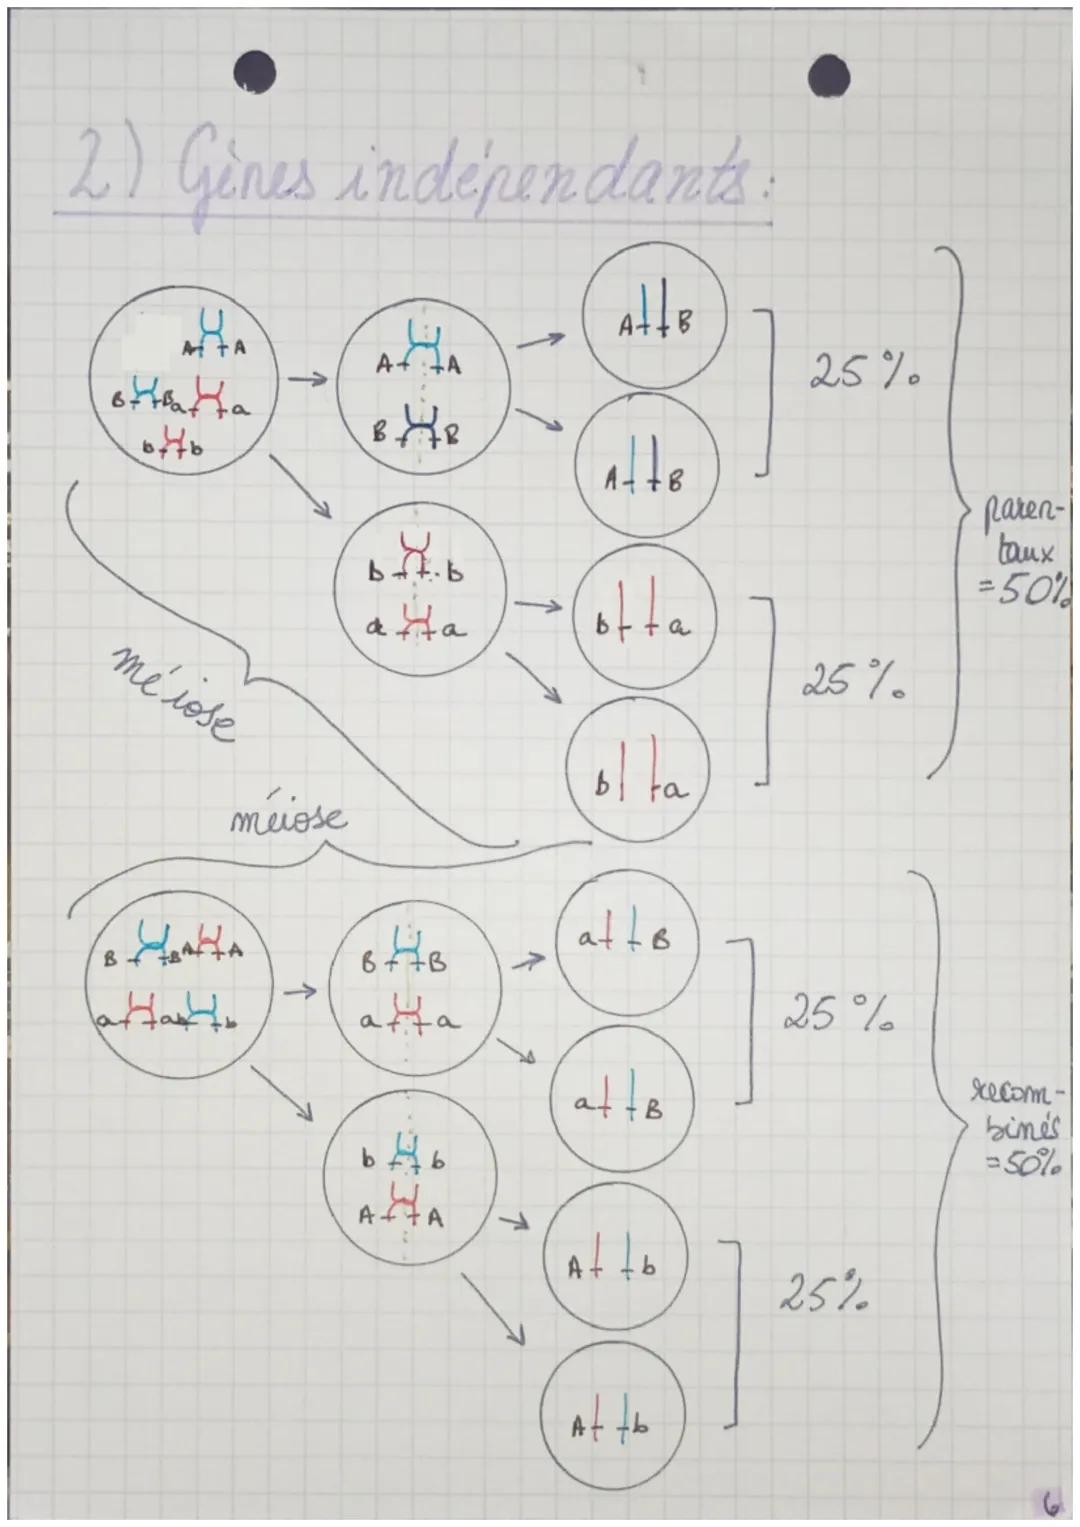 2) Gènes indépendants:
A A
B B a a
b b
A A
B B
A B
25%
A B
b b
a a
b a
25%
b a
paren-
taux
=50%
méiose
méiose
B B A A
a a b b
B B
a a
a B
25%
a B
b b
A A
A b
25%
A b
recom-
binés
=50%
6